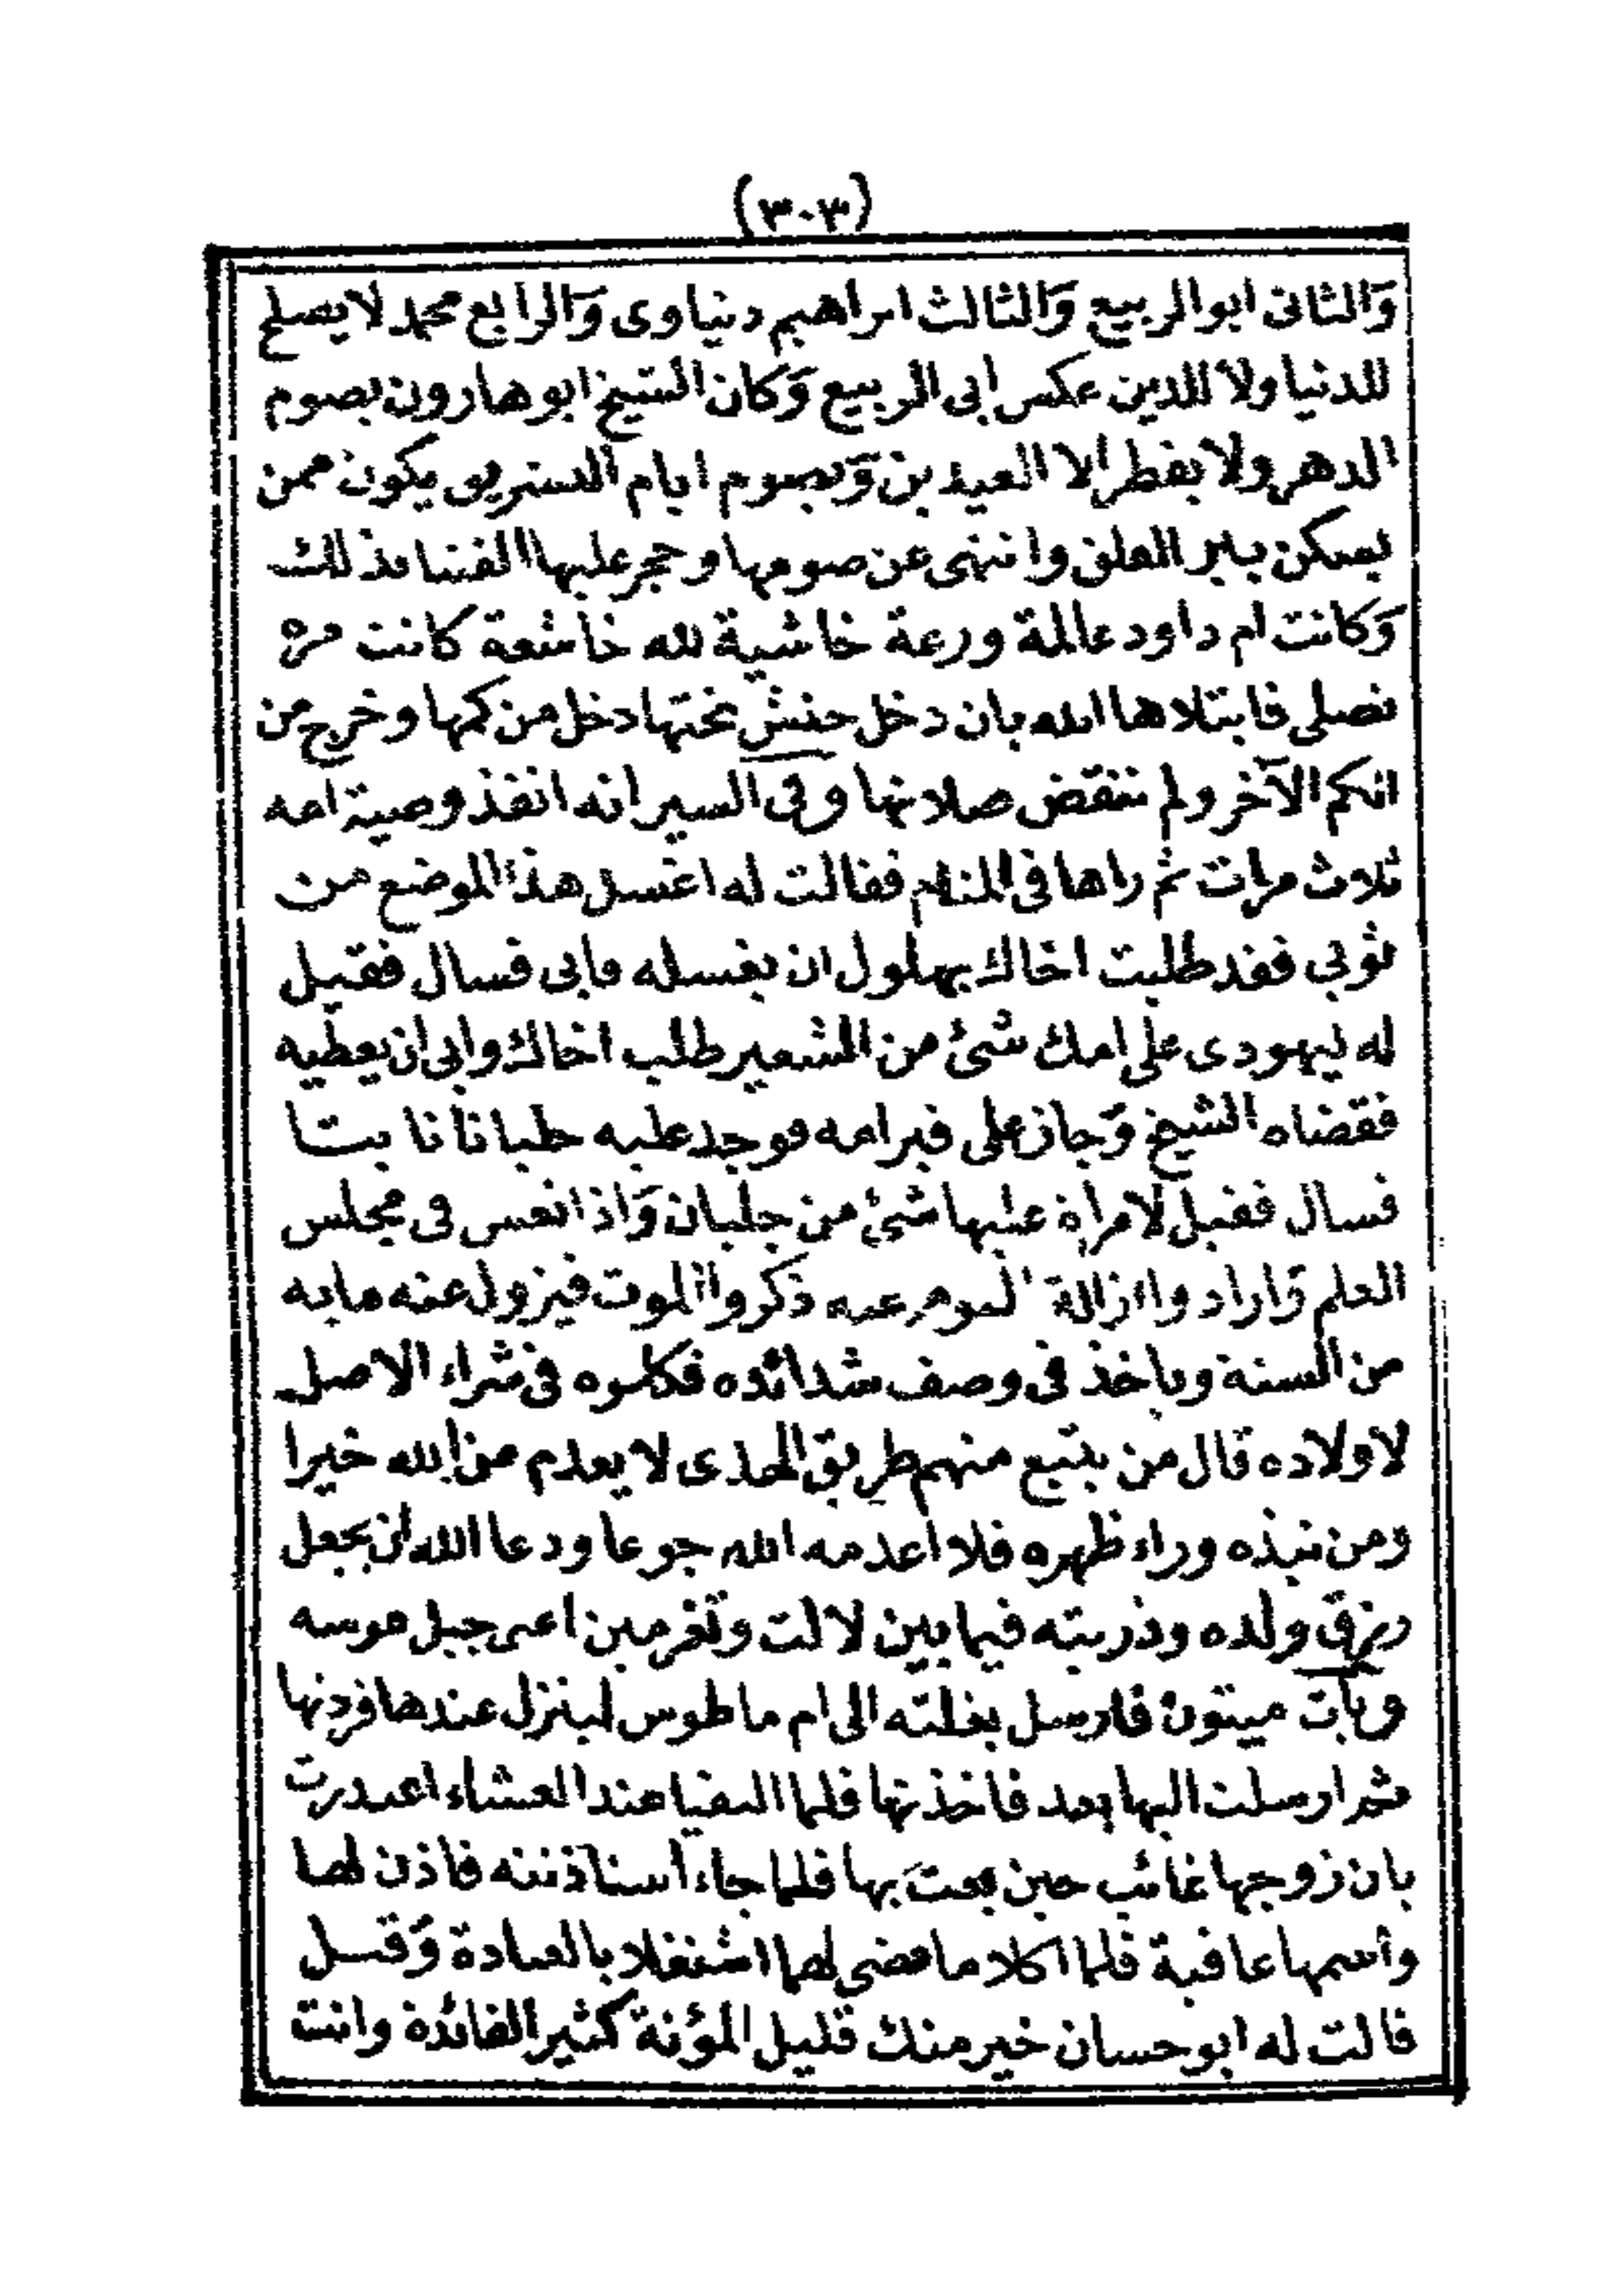 (٣٠٣)
وَالثانى ابوالربيع وَالثالث ابراهيم دنياوى وَالرابع محمد لا يصلح
للدنيا ولا للدين عكس ابى الربيع وَكان الشيخ ابو هارون يصوم
الدهر ولا يفطر الا العيدين وَيصوم ايام التشريق يكون ممن
يسكن ببير العلق وانتهى عن صومها وحجر عليها الفتنا بذلك
وَكانت ام داود عالمة ورعة خاشية لله خاشعة كانت مرة
تصلى فابتلاها الله بان دخل حنش تحتها دخل من كمها وخرج من
الكم الآخر ولم تنقض صلاتها وفى السير انه انفذ وصية امه
ثلاث مرات ثم راها فى المنام فقالت له اغسل هذا الموضع من
ثوبي فقد طلبت اخاك بهلول ان يغسله فابى فسال فقيل
له ليهودى على امك شئ من الشعير طلب اخاك وابى ان يعطيه
فقضاه الشيخ وَجاز على قبر امه فوجد عليه حلبانا نابتا
فسال فقيل لامراة عليها شئ من جلبان وَاذا نعس فى مجلس
العلم وَارادوا ازالة النوم عنه ذكروا الموت فيزول عنه ما به
من السنة وياخذ فى وصف شدائده فكلموه فى شراء الاصل
لاولاده قال من يتبع منهم طريق الهدى لا يعدم من الله خيرا
ومن نبذه وراء ظهره فلا اعدمه الله جوعا ودعا الله ان يجعل
رزق ولده وذريته فيما بين لالت وتغرمين اعى جبل موسه
وبات ميتون فارسل بغلته الى ام ماطوس لينزل عندها فردتها
ثم ارسلت اليها بعد فاخذتها فلما التقيا عند العشاء اعتذرت
بان زوجها غائب حين بعث بها فلما جاء استاذنته فاذن لها
واسمها عافية فلما اكلا ما قضى لهما اشتغلا بالعبادة وَقيل
قالت له ابو حسان خير منك قليل المؤنة كثير الفائدة وانت